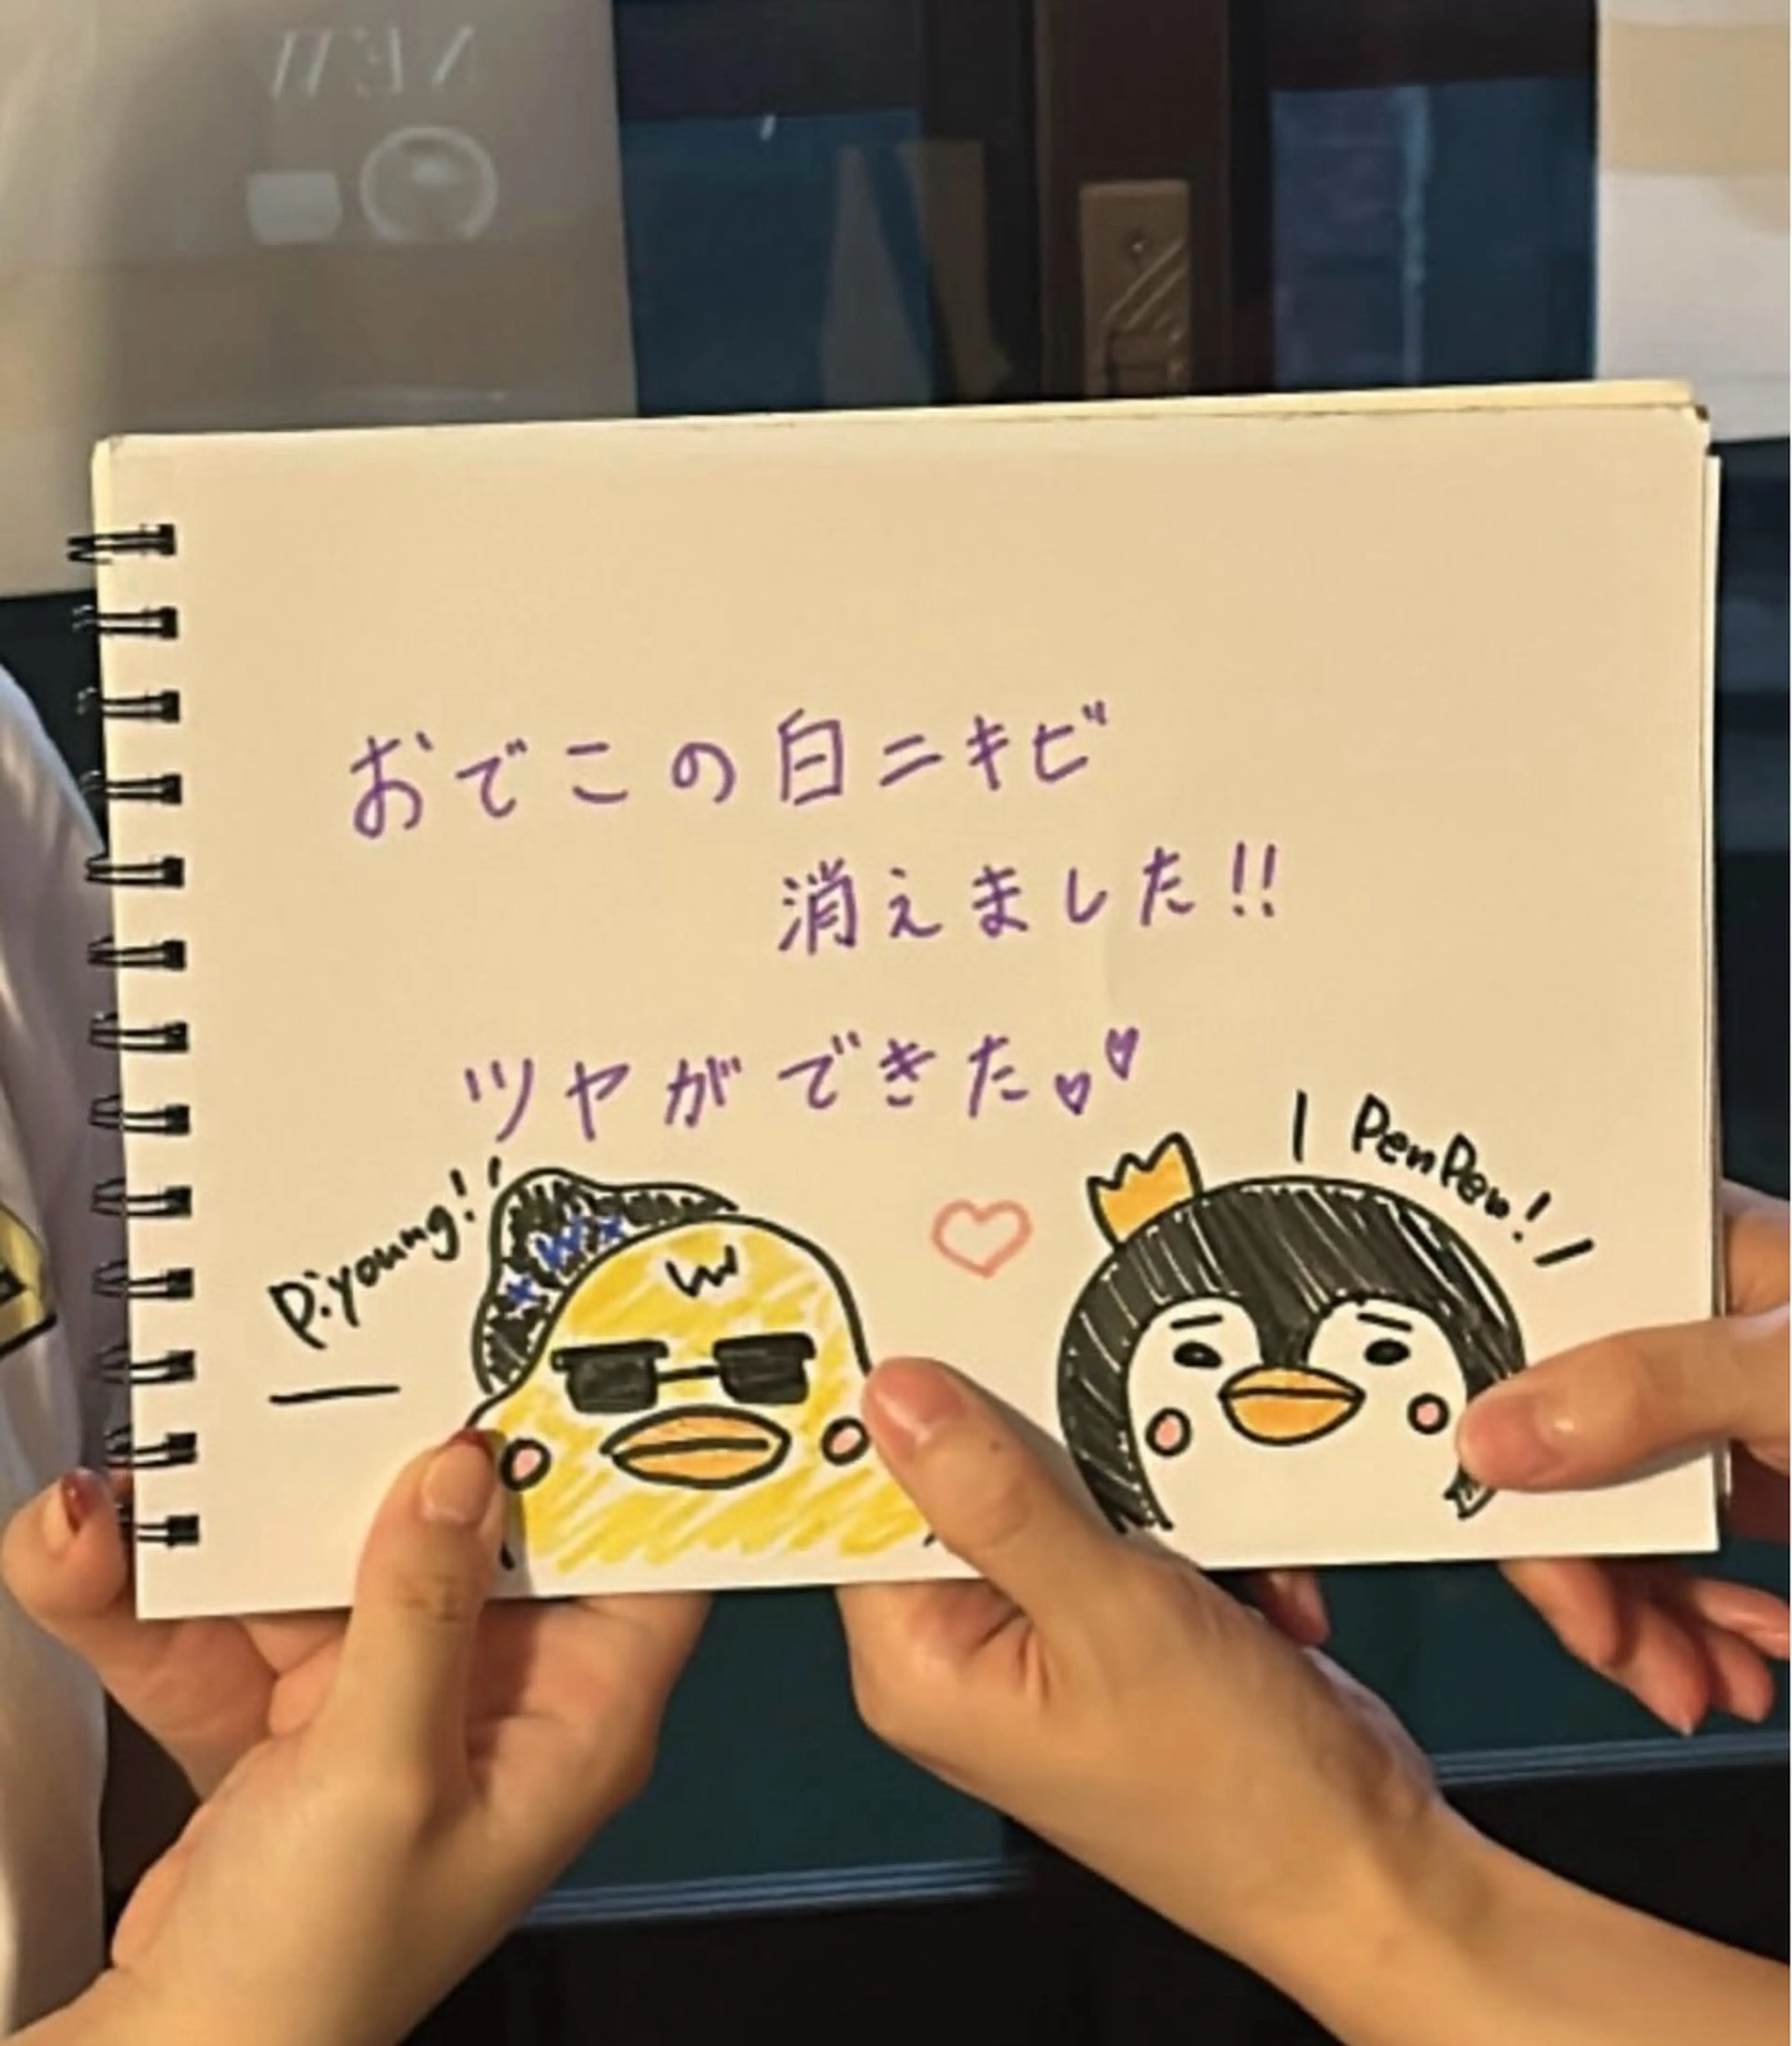 NEW
おでこの白ニキビ
消えました!!
ツヤができた
Piyoung!
PenPen!